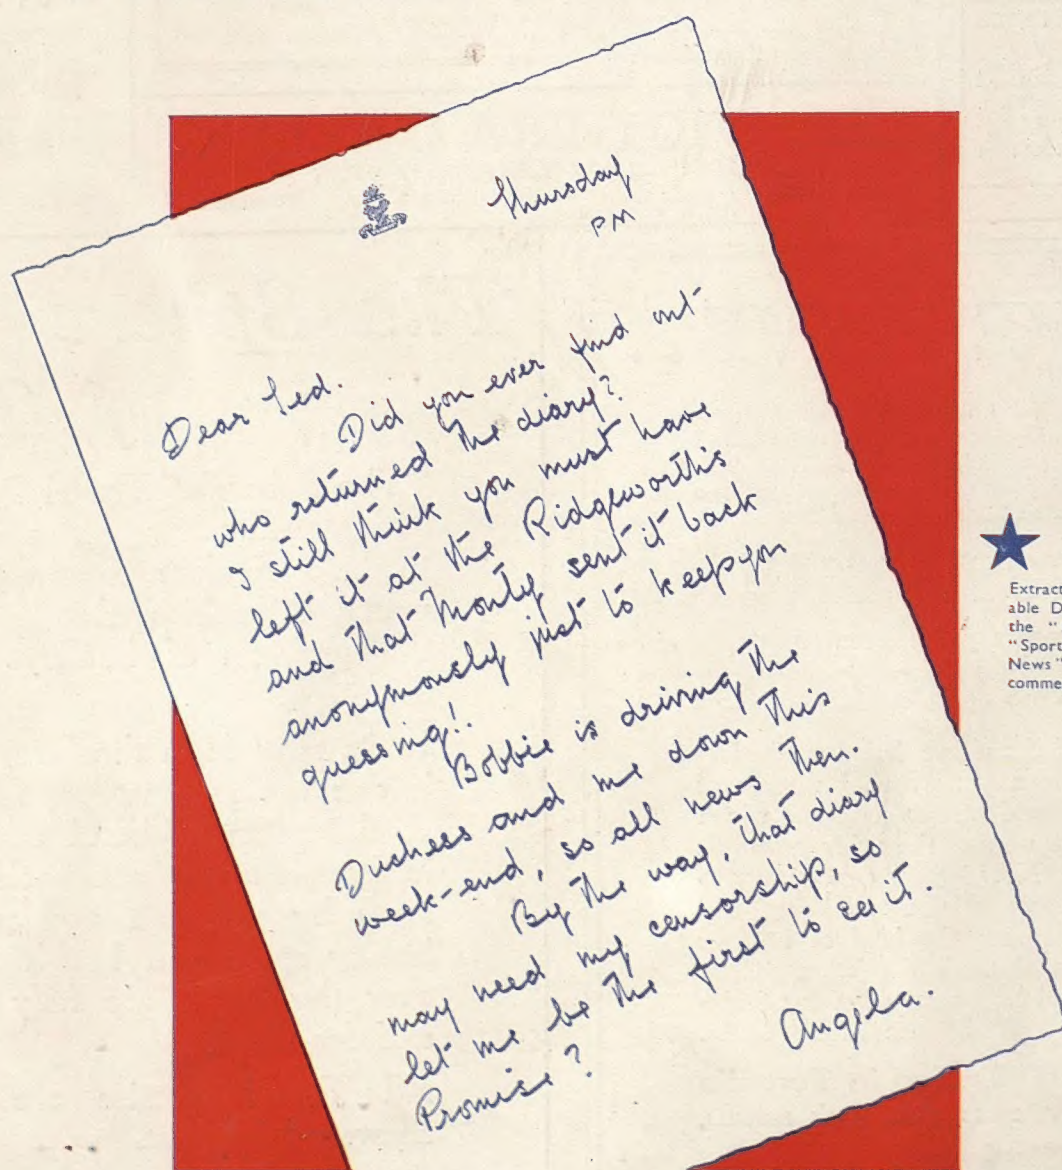 Thursday
PM
Dear Ted.
Did you ever find out
who returned the diary?
I still think you must have
left it at the Ridgeworth's
and that Monty sent it back
anonymously just to keep you
guessing!.
Bobbie is driving the
Duchess and me down this
week-end, so all news then.
By the way, that diary
may need my censorship, so
let me be the first to see it.
Promise?
Angela.
Extract
able D
the "
"Sport
News"
comme